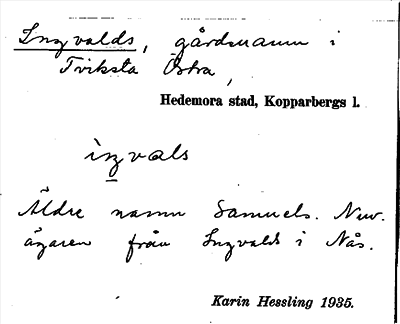 Ingvalds, gårdsnamn i
Tviksta Östra,
Hedemora stad, Kopparbergs l.
ingvals
Äldre namn Samuels. Nuv.
ägaren från Ingvalds i Nås.
Karin Hessling 1935.